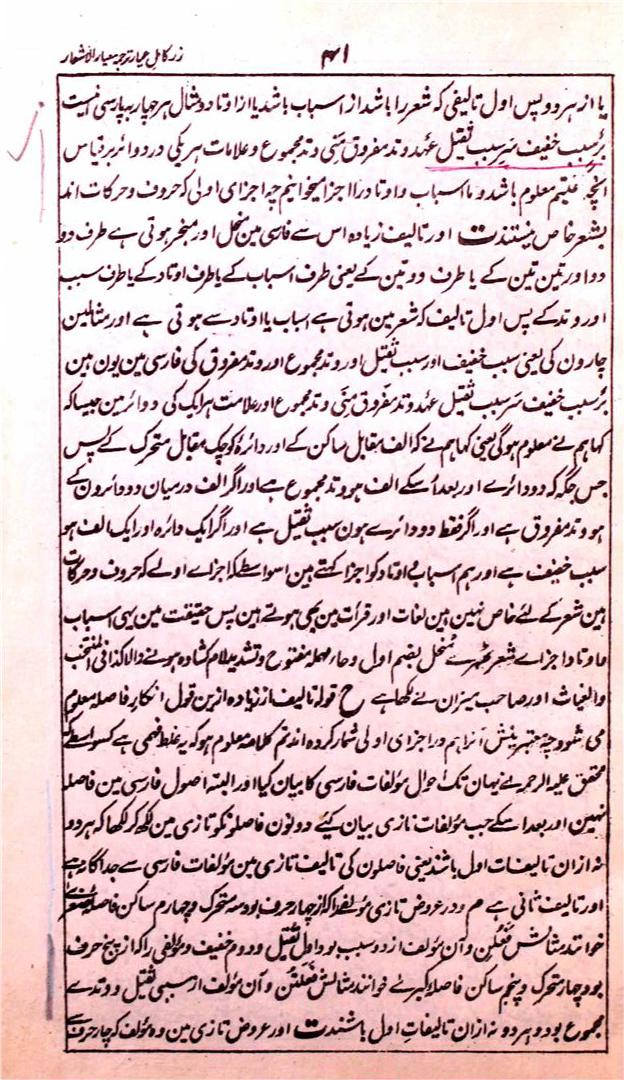 زر کامل عیار ترجمہ معیار الاشعار
۴۱
یا از ہر دو پس اول تالیفی کہ شعر را باشد از اسباب باشد یا از اوتاد و مثال ہر چہار بپارسی اینست
بُر سبب خفیف سَرِ سبب ثقیل عَہْد وتد مفروق مَنی وتد مجموع و علامات ہر یکی در دوائر بر قیاس
انچہ گفتیم معلوم باشد و ما اسباب و اوتاد را اجزا میخوانیم چہ اجزای اولی کہ حروف و حرکات اند
بشعر خاص نیستند ت اور تالیف زیادہ اس سے فارسی مین منحل اور منجر ہوتی ہے طرف دو
دو اور تین تین کے یا طرف دو و تین کے یعنی طرف اسباب کے یا طرف اوتاد کے یا طرف سبب
اور وتد کے پس اول تالیف کہ شعر مین ہوتی ہے اسباب یا اوتاد سے ہوتی ہے اور مثالین
چارون کی یعنی سبب خفیف اور سبب ثقیل اور وتد مجموع اور وتد مفروق کی فارسی مین یون ہین
بُر سبب خفیف سَرِ سبب ثقیل عَہْد وتد مفروق مَنی وتد مجموع اور علامت ہر ایک کی دوائر مین جیسا کہ
کہا ہم نے معلوم ہوگی یعنی کہا ہم نے کہ الف مقابل ساکن کے اور دائرہ کوچک مقابل متحرک کے پس
جس جگہ کہ دو دائرے اور بعد اُسکے الف ہو وتد مجموع ہے اور اگر الف درمیان دو دائرون کے
ہو وتد مفروق ہے اور اگر فقط دو دائرے ہون سبب ثقیل ہے اور اگر ایک دائرہ اور ایک الف ہو
سبب خفیف ہے اور ہم اسباب و اوتاد کو اجزا کہتے ہین اسواسطے کہ اجزاے اولے کہ حروف و حرکات
ہین شعر کے لئے خاص نہین ہین لغات اور قرأت مین بھی ہوتے ہین پس حقیقت مین یہی اسباب
و اوتاد اجزاے شعر ٹھہرے مُنحل بضم اول و حاء مہملہ مفتوح و تشدید لام کشادہ ہونے والا کذا فی المنتخب
والغیاث اور صاحب میزان نے لکھا ہے ح قولہ تالیف از زیادہ ازین قول انکار فاصلہ معلوم
می شود و چہ آنرا ہم در اجزای اولی شمار کردہ اند تم کلامہ معلوم ہو کہ یہ غلط فہمی ہے کسواسطے کہ
محقق علیہ الرحمہ نے یہان تک احوال مؤلفات فارسی کا بیان کیا اور البتہ اصول فارسی مین فاصلہ
نہین اور بعد اسکے جب مؤلفات تازی بیان کیئے دونون فاصلونکو تازی مین لکھ کر لکھا کہ ہر دو
نہ از ان تالیفات اول باشند یعنی فاصلون کی تالیف تازی مین مؤلفات فارسی سے جداگانہ ہے
اور تالیف ثانی ہے م و در عروض تازی مؤلفی را کہ از چہار حرف بود سہ متحرک و چہارم ساکن فاصلہ صغری
خوانند مثالش فَعِلُنْ و آن مؤلف از دو سبب بود اول ثقیل و دوم خفیف و مؤلفی را کہ از پنج حرف
بود چہار متحرک و پنجم ساکن فاصلہ کبرے خوانند مثالش فَعِلَتُنْ و آن مؤلف از سببی ثقیل و وتدے
مجموع بود و ہر دو نہ از ان تالیفات اول باشند ت اور عروض تازی مین وہ مؤلف کہ چار حرف سے